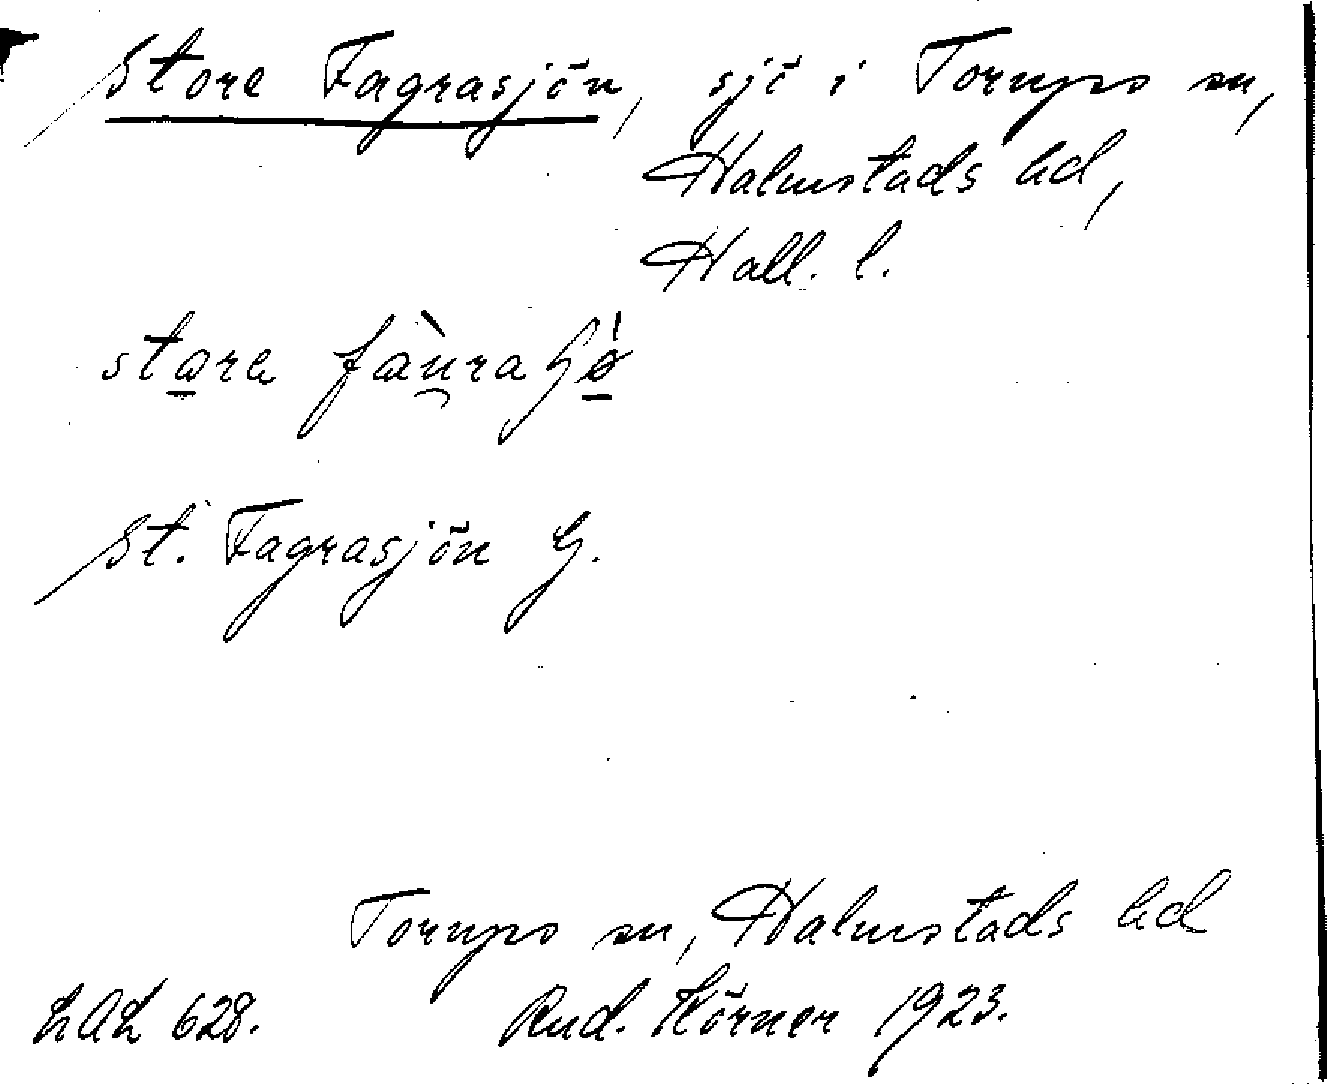 Store Fagrasjön, sjö i Torups sn,
Halmstads hd,
Hall. l.
stara
St. Fagrasjön G.
Torups sn, Halmstads hd
LAL 628. Rud. Körner 1923.